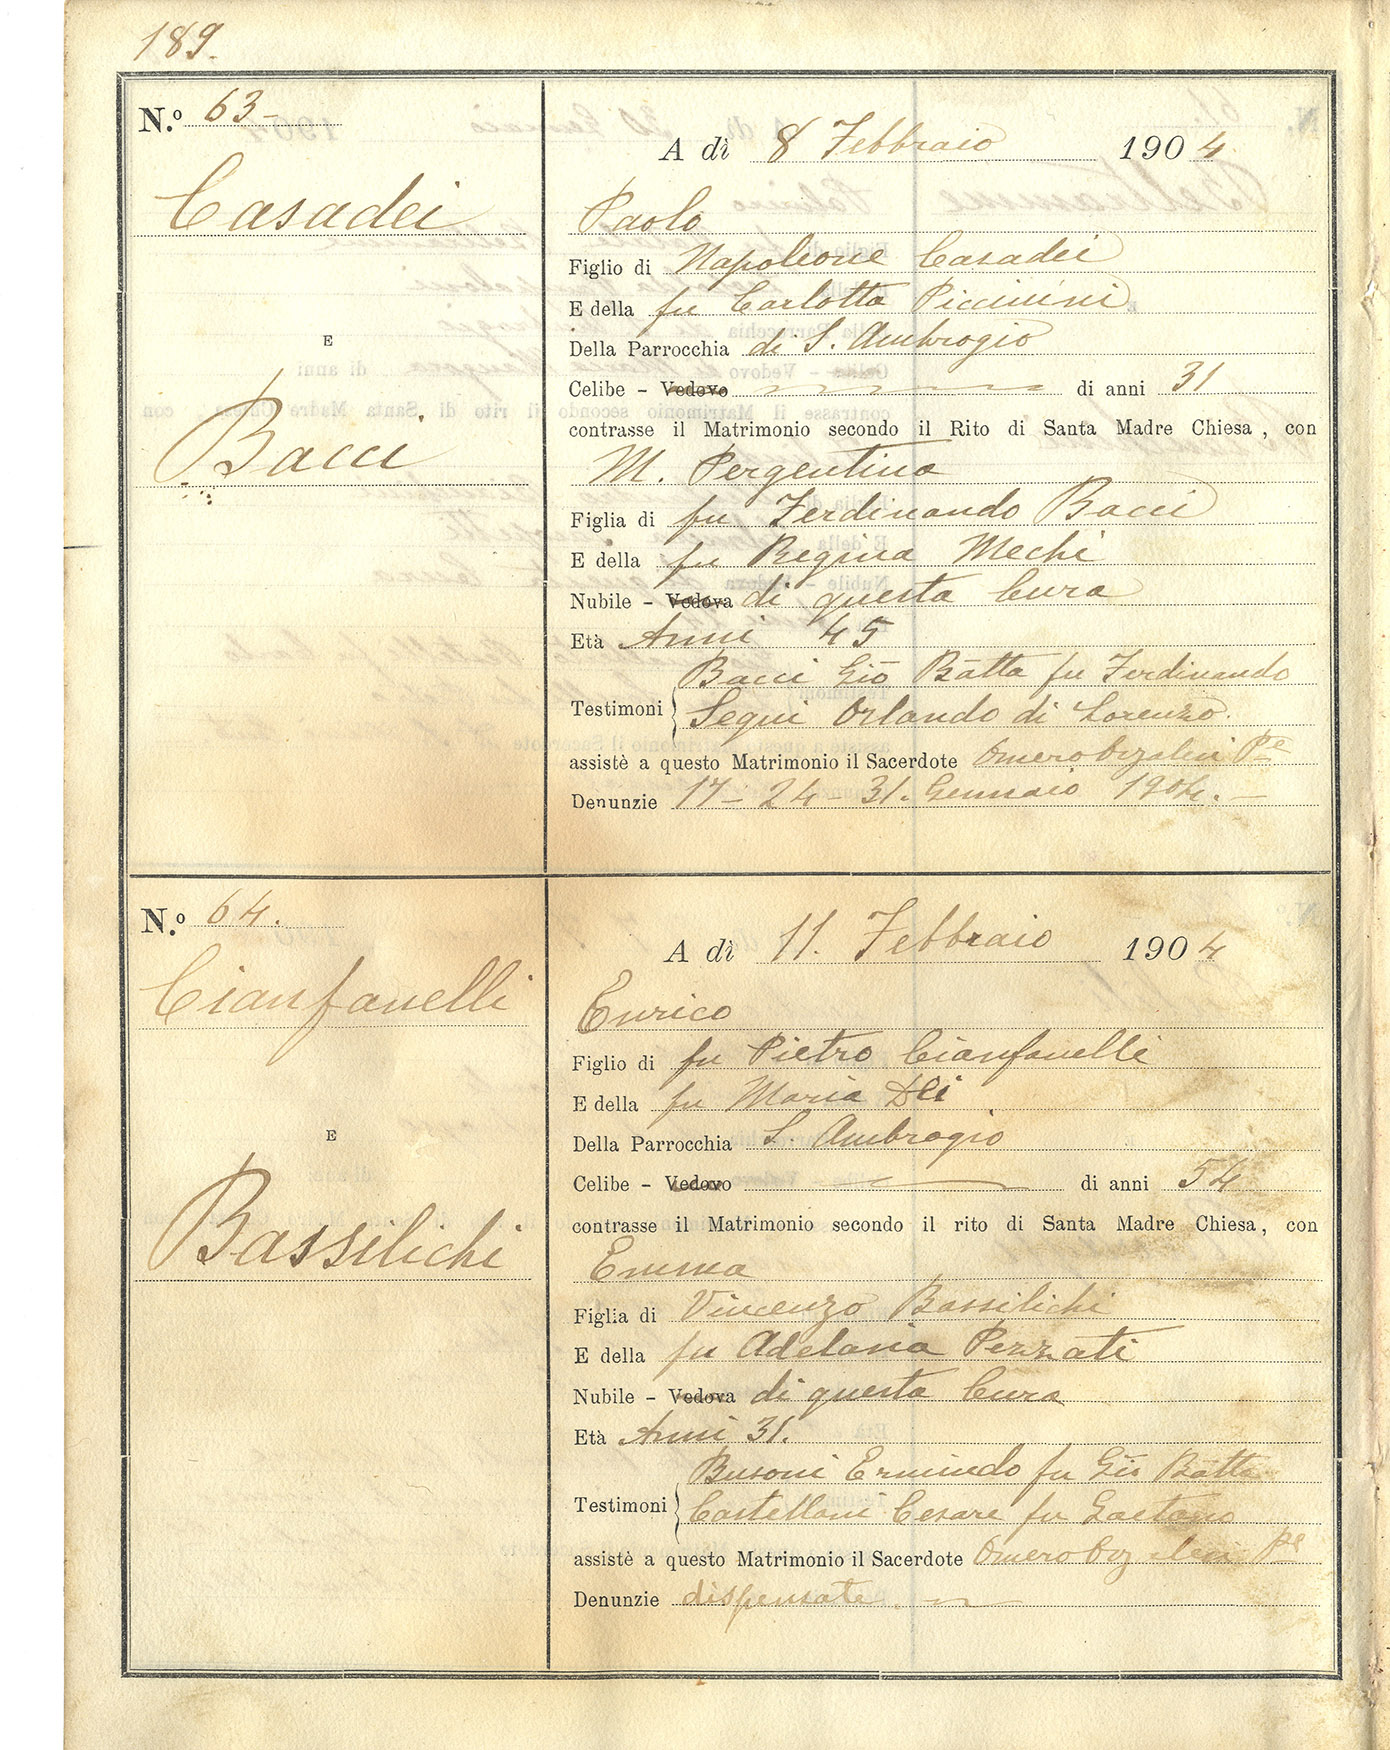 189.
N.º 63-
Casadei
E
Bacci
A dì 8 Febbraio 1904
Paolo
Figlio di Napoleone Casadei
E della fu Carlotta Piccinini
Della Parrocchia di S. Ambrogio
Celibe - Vedovo di anni 31
contrasse il Matrimonio secondo il Rito di Santa Madre Chiesa, con
M. Pergentina
Figlia di fu Ferdinando Bacci
E della fu Regina Mechi
Nubile - Vedova di questa Cura
Età Anni 45
Bacci Gio Batta fu Ferdinando
Testimoni Segui Orlando di Lorenzo.
assistè a questo Matrimonio il Sacerdote Omero
Denunzie 17-24-31. Gennaio 1904.-
N.º 64.
Cianfanelli
E
Bassilichi
A dì 11. Febbraio 1904
Enrico
Figlio di fu Pietro Cianfanelli
E della fu Maria Dei
Della Parrocchia S. Ambrogio
Celibe - Vedovo di anni 54
contrasse il Matrimonio secondo il rito di Santa Madre Chiesa, con
Emma
Figlia di Vincenzo Bassilichi
E della fu Adelaria Pezzati
Nubile - Vedova di questa Cura
Età Anni 31.
Busoni Ermindo fu Gio Batta
Testimoni Castellani Cesare fu Gaetano
assistè a questo Matrimonio il Sacerdote Omero
Denunzie dispensate.